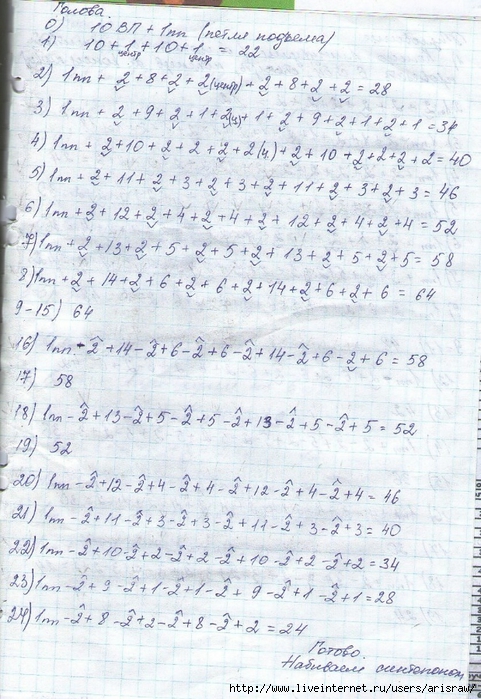 Голова.
0) 10 ВП + 1пп (петля подъема)
1) 10 + 1 + 10 + 1 = 22
центр центр
2) 1пп + 2̬ + 8 + 2̬ + 2̬(центр) + 2̬ + 8 + 2̬ + 2̬ = 28
3) 1пп + 2̬ + 9 + 2̬ + 1 + 2̬(ц) + 1 + 2̬ + 9 + 2̬ + 1 + 2̬ + 1 = 34
4) 1пп + 2̬ + 10 + 2̬ + 2 + 2̬ + 2(ц) + 2̬ + 10 + 2̬ + 2 + 2̬ + 2 = 40
5) 1пп + 2̬ + 11 + 2̬ + 3 + 2̬ + 3 + 2̬ + 11 + 2̬ + 3 + 2̬ + 3 = 46
6) 1пп + 2̬ + 12 + 2̬ + 4 + 2̬ + 4 + 2̬ + 12 + 2̬ + 4 + 2̬ + 4 = 52
7) 1пп + 2̬ + 13 + 2̬ + 5 + 2̬ + 5 + 2̬ + 13 + 2̬ + 5 + 2̬ + 5 = 58
8) 1пп + 2̬ + 14 + 2̬ + 6 + 2̬ + 6 + 2̬ + 14 + 2̬ + 6 + 2̬ + 6 = 64
9-15) 64
16) 1пп - 2̂ + 14 - 2̂ + 6 - 2̂ + 6 - 2̂ + 14 - 2̂ + 6 - 2̂ + 6 = 58
17) 58
18) 1пп - 2̂ + 13 - 2̂ + 5 - 2̂ + 5 - 2̂ + 13 - 2̂ + 5 - 2̂ + 5 = 52
19) 52
20) 1пп - 2̂ + 12 - 2̂ + 4 - 2̂ + 4 - 2̂ + 12 - 2̂ + 4 - 2̂ + 4 = 46
21) 1пп - 2̂ + 11 - 2̂ + 3 - 2̂ + 3 - 2̂ + 11 - 2̂ + 3 - 2̂ + 3 = 40
22) 1пп - 2̂ + 10 - 2̂ + 2 - 2̂ + 2 - 2̂ + 10 - 2̂ + 2 - 2̂ + 2 = 34
23) 1пп - 2̂ + 9 - 2̂ + 1 - 2̂ + 1 - 2̂ + 9 - 2̂ + 1 - 2̂ + 1 = 28
24) 1пп - 2̂ + 8 - 2̂ + 2 - 2̂ + 8 - 2̂ + 2 = 24
Готово.
Набиваем синтепоном
http://www.liveinternet.ru/users/arisraw/